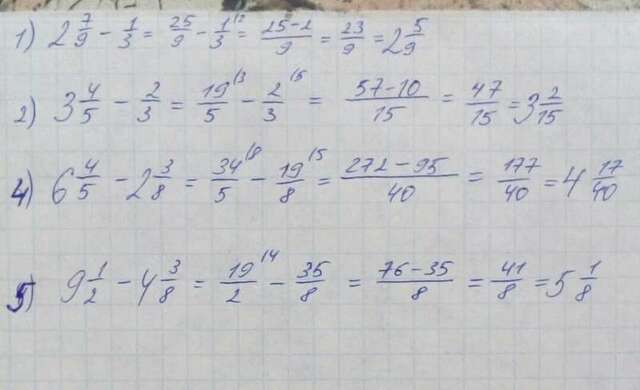 1) 2 7/9 - 1/3 = 25/9 - 1/3 = 25-2/9 = 23/9 = 2 5/9
2) 3 4/5 - 2/3 = 19/5 /3 - 2/3 /5 = 57-10/15 = 47/15 = 3 2/15
4) 6 4/5 - 2 3/8 = 34/5 /8 - 19/8 /5 = 272-95/40 = 177/40 = 4 17/40
5) 9 1/2 - 4 3/8 = 19/2 /4 - 35/8 = 76-35/8 = 41/8 = 5 1/8